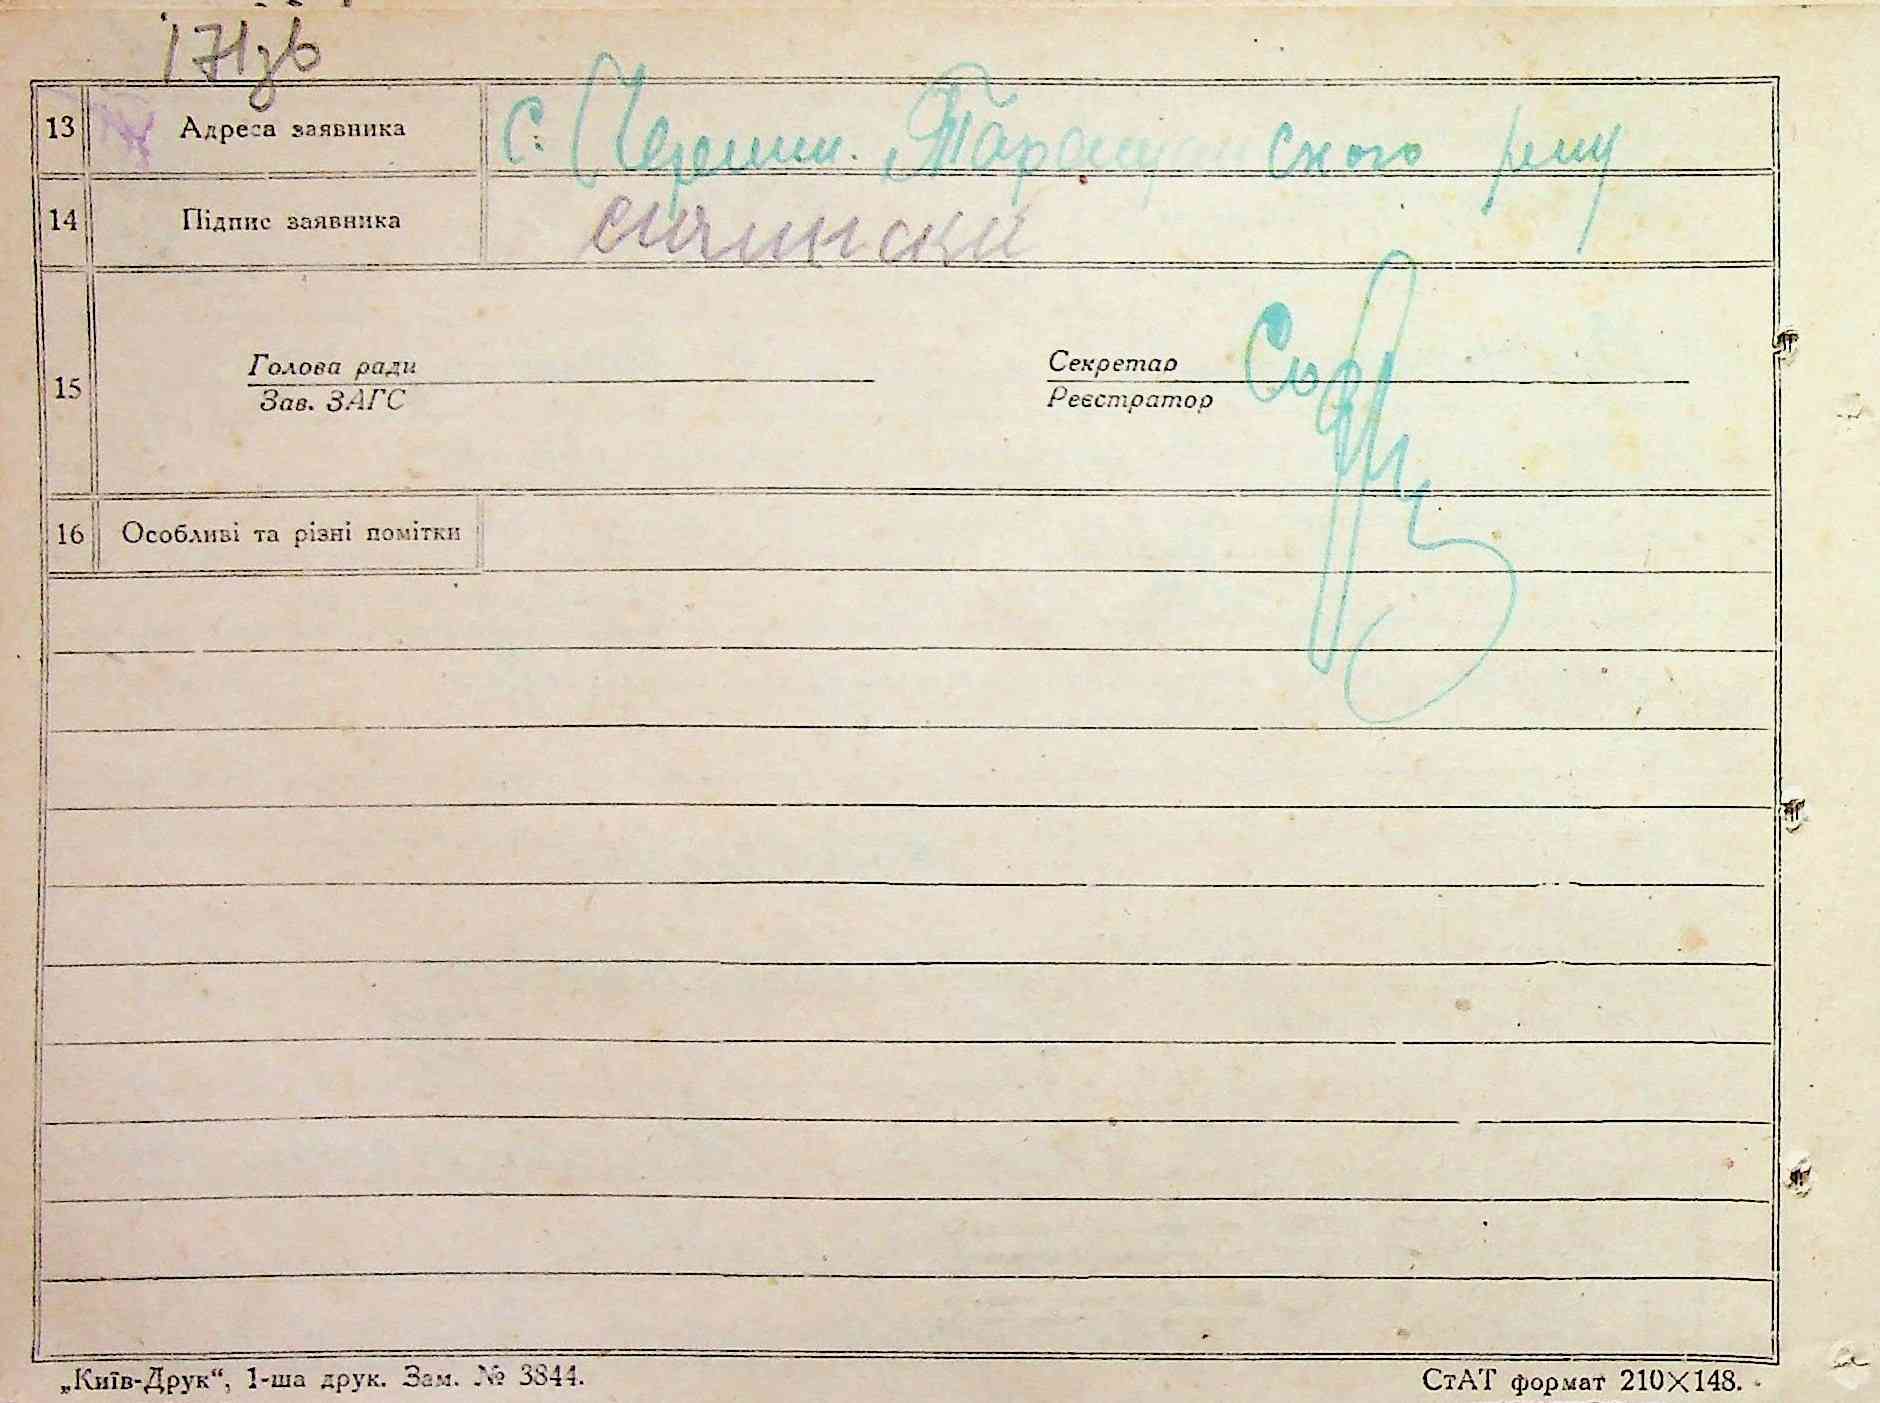 171зв
13 Адреса заявника с. Черепин. Таращанского р-ну
14 Підпис заявника
15 Голова ради Секретар
Зав. ЗАГС Реєстратор
16 Особливі та різні помітки
„Київ-Друк“, 1-ша друк. Зам. № 3844. СтАТ формат 210×148.